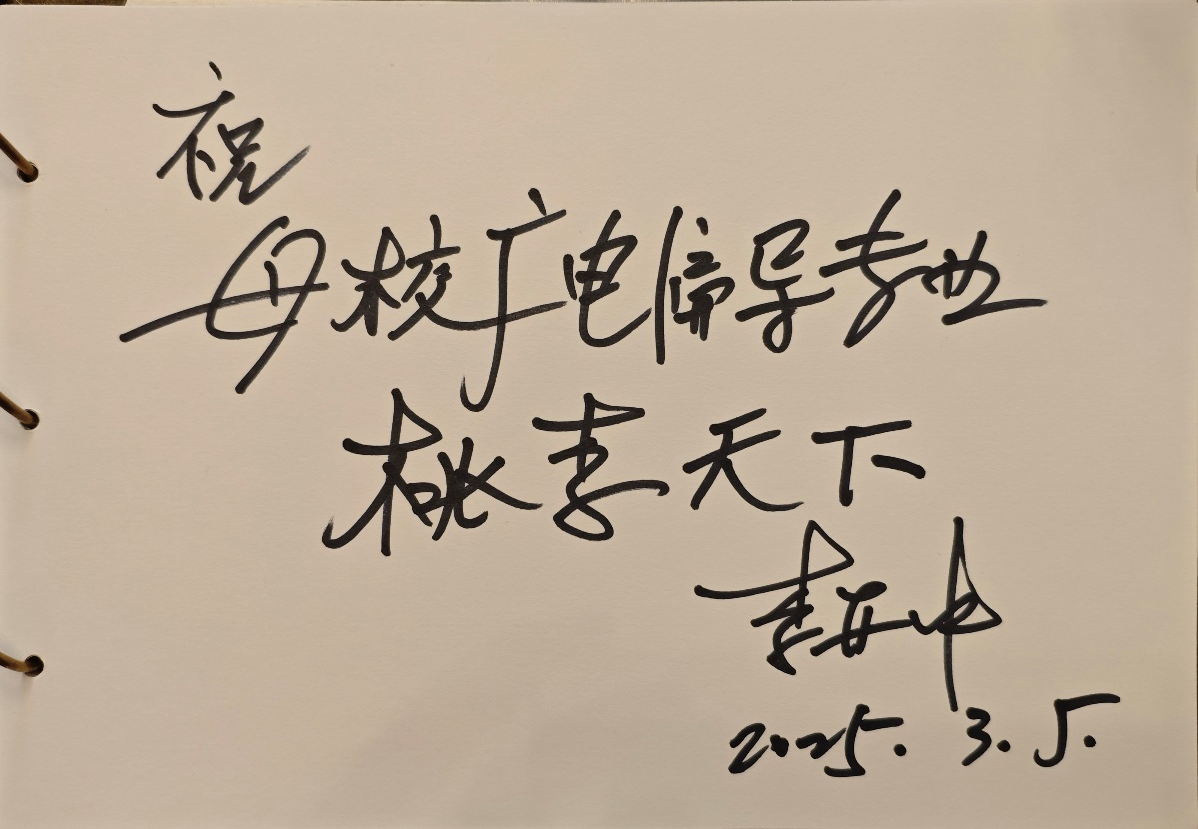 祝
母校广电编导专业
桃李天下
李亚中
2025.3.5.